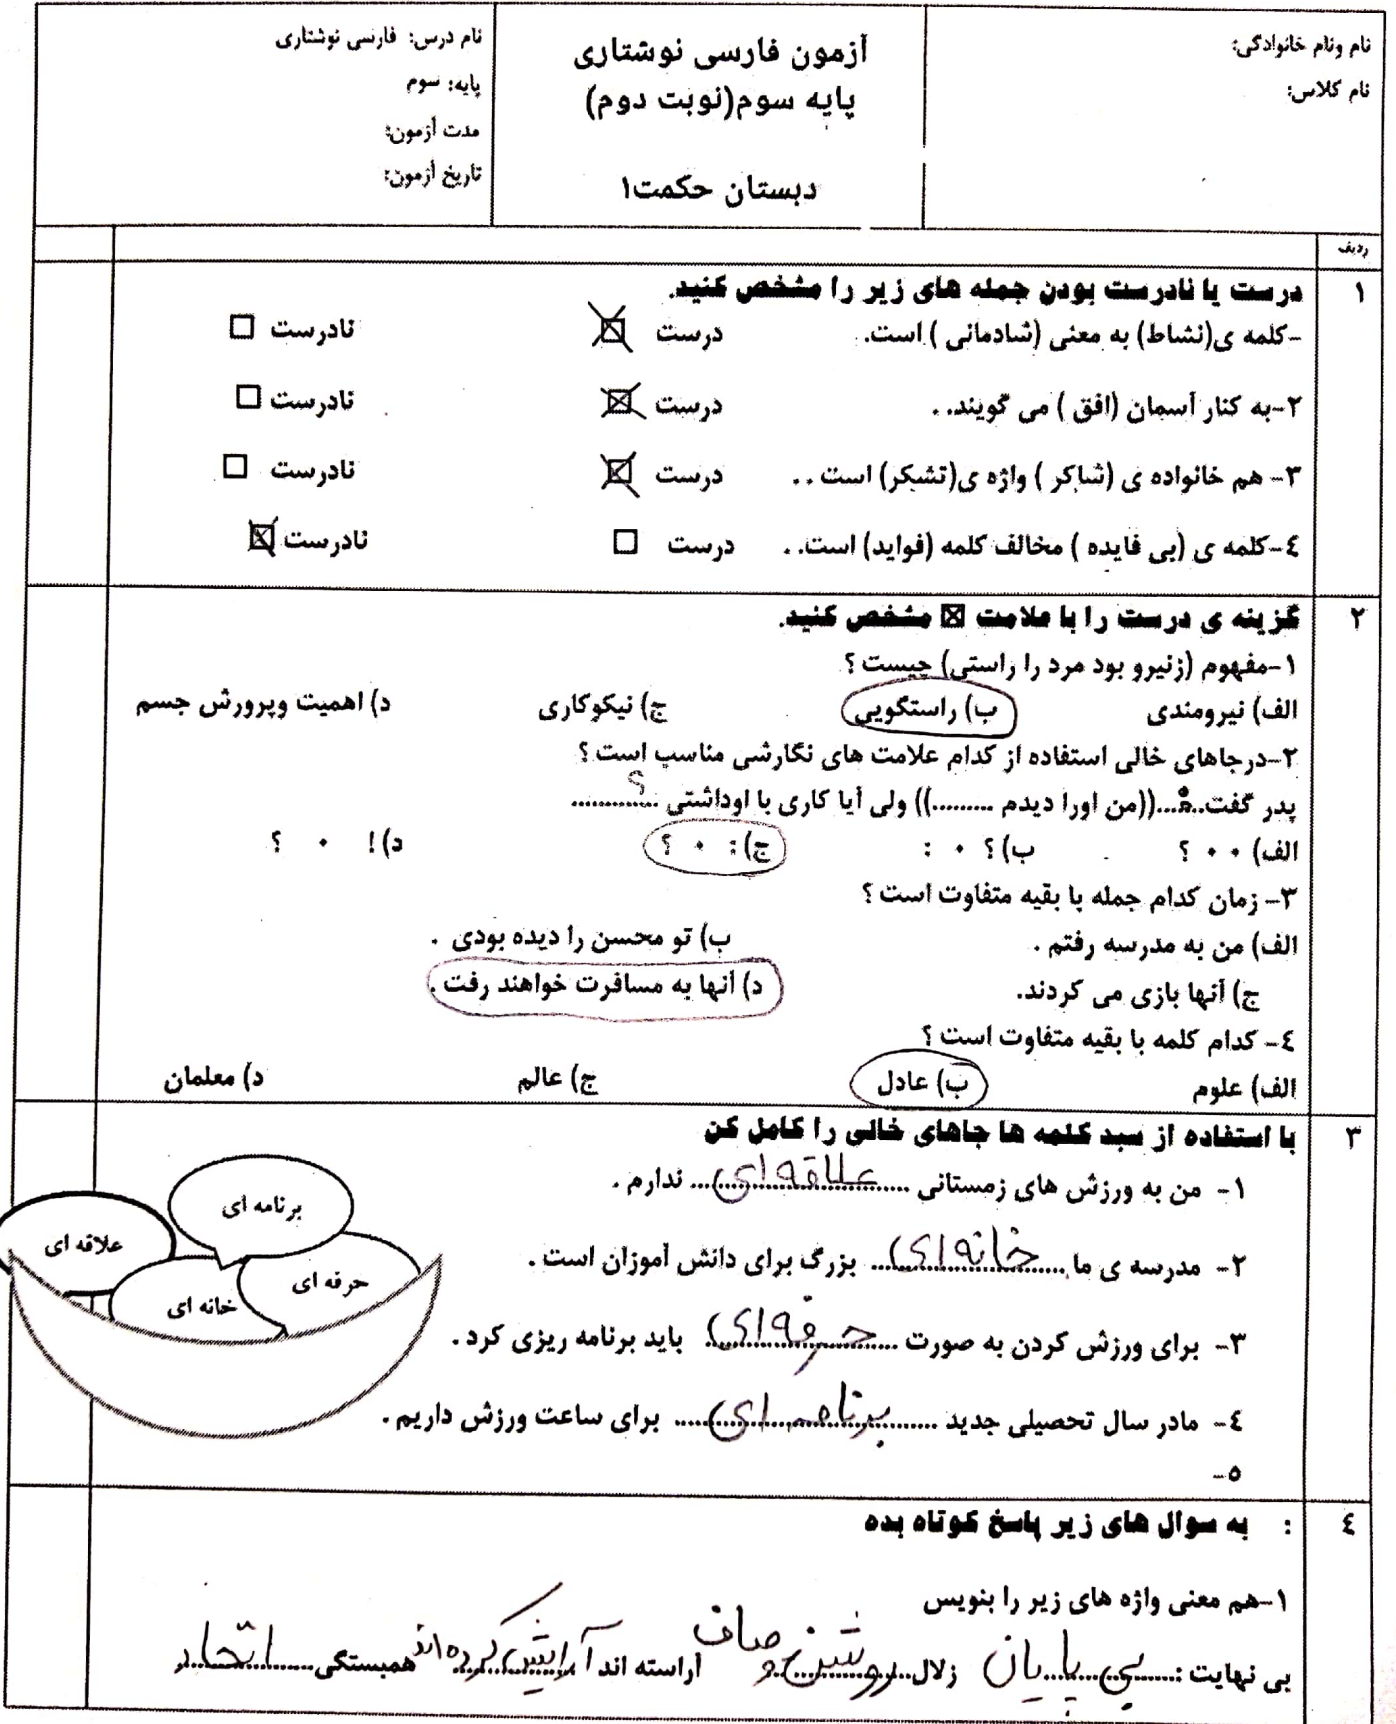 نام ونام خانوادگی:
نام کلاس:
آزمون فارسی نوشتاری
پایه سوم(نوبت دوم)
دبستان حکمت۱
نام درس: فارسی نوشتاری
پایه: سوم
مدت آزمون:
تاریخ آزمون:
ردیف
۱ درست یا نادرست بودن جمله های زیر را مشخص کنید.
-کلمه ی(نشاط) به معنی (شادمانی ) است. درست ☒ نادرست ☐
۲-به کنار آسمان (افق ) می گویند. . درست ☒ نادرست ☐
۳- هم خانواده ی (شاکر ) واژه ی(تشکر) است . . درست ☒ نادرست ☐
٤-کلمه ی (بی فایده ) مخالف کلمه (فواید) است. . درست ☐ نادرست ☒
۲ گزینه ی درست را با علامت ☒ مشخص کنید.
۱-مفهوم (زنیرو بود مرد را راستی) چیست ؟
الف) نیرومندی ب) راستگویی ج) نیکوکاری د) اهمیت وپرورش جسم
۲-درجاهای خالی استفاده از کدام علامت های نگارشی مناسب است ؟
پدر گفت..:...((من اورا دیدم .........)) ولی آیا کاری با اوداشتی ....؟........
الف) ۰ ۰ ؟ ب) ؟ ۰ : ج) : ۰ ؟ د) ! ۰ ؟
۳- زمان کدام جمله با بقیه متفاوت است ؟
الف) من به مدرسه رفتم . ب) تو محسن را دیده بودی .
ج) آنها بازی می کردند. د) آنها به مسافرت خواهند رفت .
٤- کدام کلمه با بقیه متفاوت است ؟
الف) علوم ب) عادل ج) عالم د) معلمان
۳ با استفاده از سبد کلمه ها جاهای خالی را کامل کن
۱- من به ورزش های زمستانی علاقه ای ندارم .
۲- مدرسه ی ما خانه ای بزرگ برای دانش آموزان است .
۳- برای ورزش کردن به صورت حرفه ای باید برنامه ریزی کرد .
٤- مادر سال تحصیلی جدید برنامه ای برای ساعت ورزش داریم .
٥-
برنامه ای
علاقه ای
حرفه ای
خانه ای
٤ : به سوال های زیر پاسخ کوتاه بده
۱-هم معنی واژه های زیر را بنویس
بی نهایت : بی پایان زلال روشن و صاف آراسته اند آرایش کرده اند همبستگی اتحاد